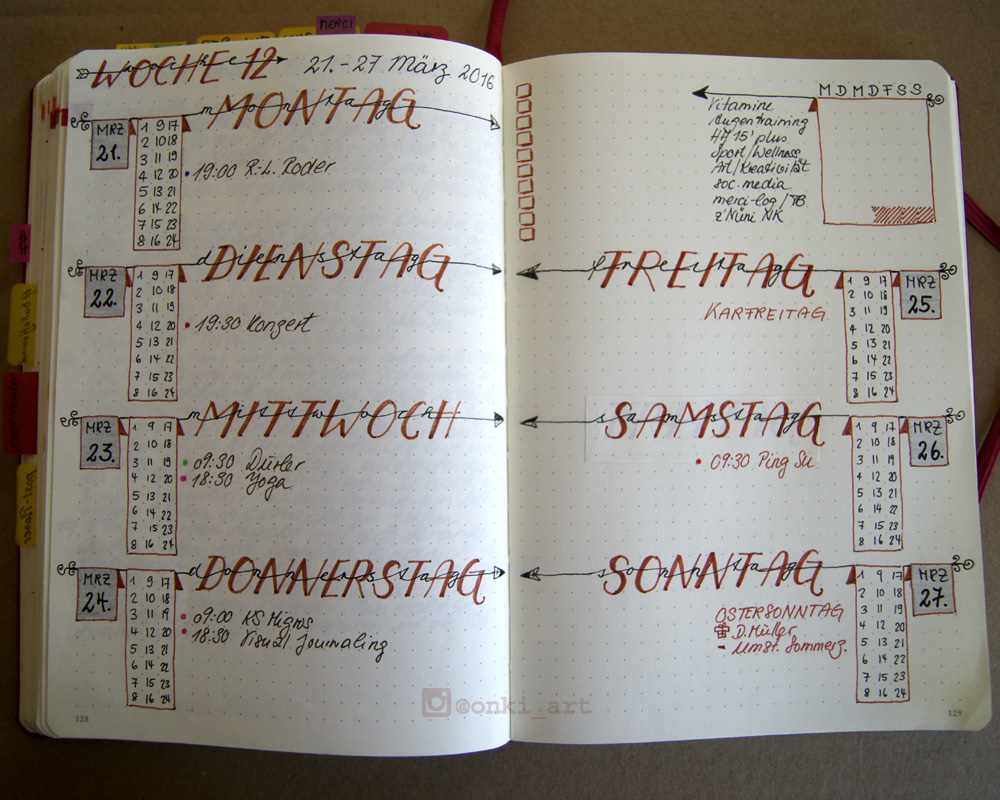 MERCI
WOCHE 12
21.-27 März 2016
MONTAG
montag
MRZ
21.
1 9 17
2 10 18
3 11 19
4 12 20
5 13 21
6 14 22
7 15 23
8 16 24
19:00 R.-L. Roder
DIENSTAG
dienstag
MRZ
22.
1 9 17
2 10 18
3 11 19
4 12 20
5 13 21
6 14 22
7 15 23
8 16 24
19:30 Konzert
MITTWOCH
mittwoch
MRZ
23.
1 9 17
2 10 18
3 11 19
4 12 20
5 13 21
6 14 22
7 15 23
8 16 24
09:30
18:30 Yoga
DONNERSTAG
donnerstag
MRZ
24.
1 9 17
2 10 18
3 11 19
4 12 20
5 13 21
6 14 22
7 15 23
8 16 24
09:00 KS Migros
18:30 Visual Journaling
128
M D M D F S S
Vitamine
Augentraining
15' plus
Sport/Wellness
Art/Kreativität
soc. media
merci-log/TB
z'Nüni
FREITAG
freitag
MRZ
25.
1 9 17
2 10 18
3 11 19
4 12 20
5 13 21
6 14 22
7 15 23
8 16 24
KARFREITAG
SAMSTAG
samstag
MRZ
26.
1 9 17
2 10 18
3 11 19
4 12 20
5 13 21
6 14 22
7 15 23
8 16 24
09:30 Ping Su
SONNTAG
sonntag
MRZ
27.
1 9 17
2 10 18
3 11 19
4 12 20
5 13 21
6 14 22
7 15 23
8 16 24
OSTERSONNTAG
D. Müller
- Umst. Sommerz.
129
@onki_art